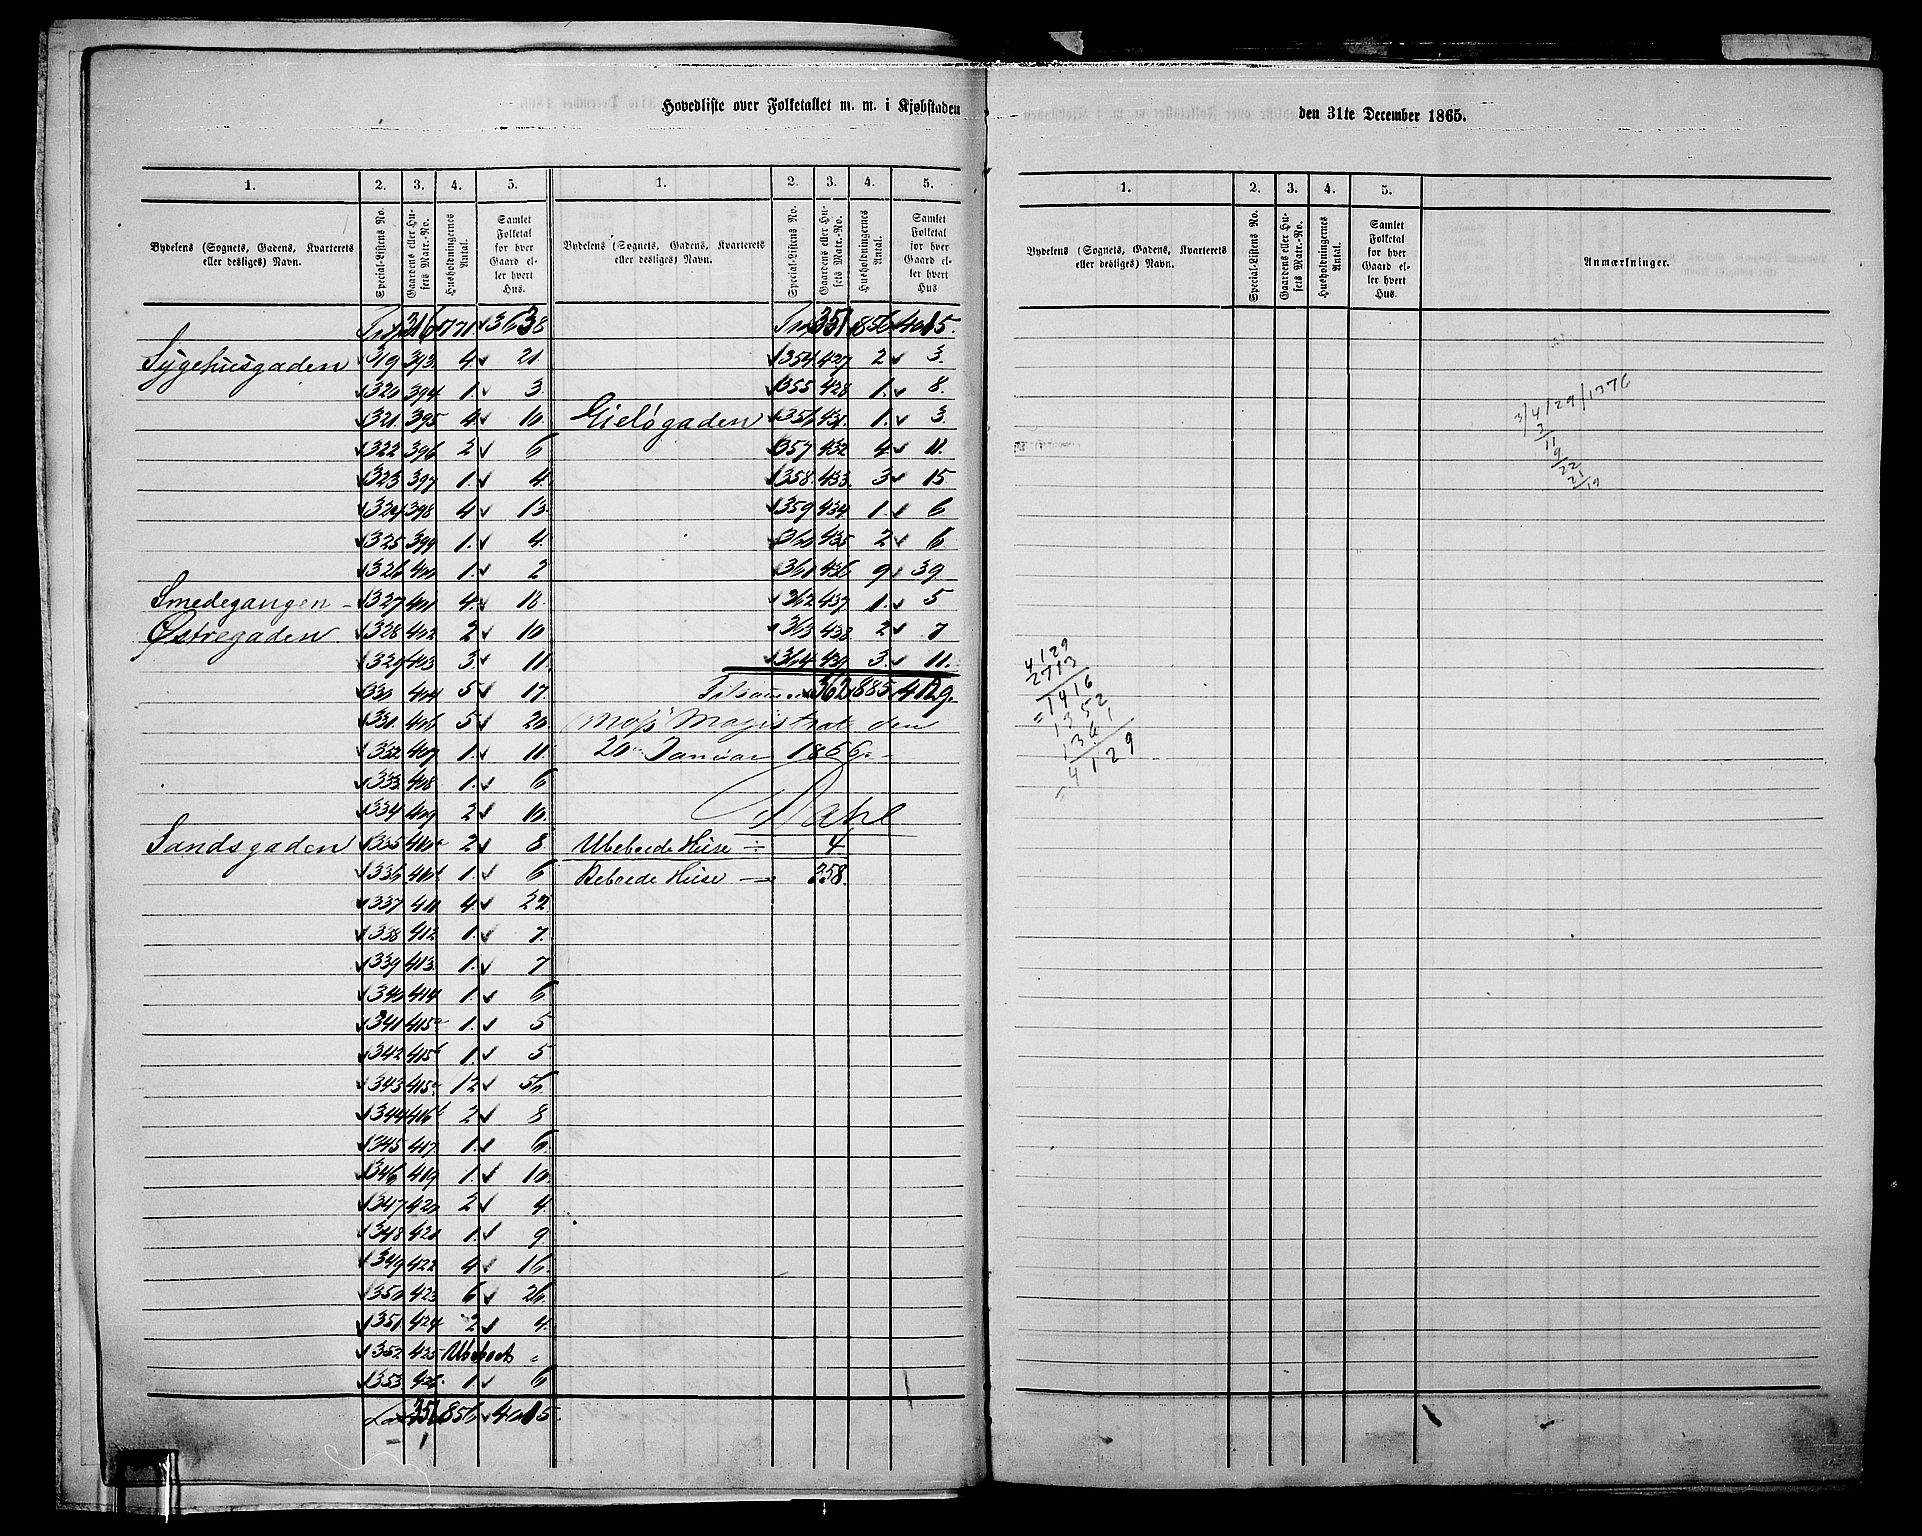 Hovedliste over Folketallet m. m. i Kjøbstaden
1. 2. 3. 4. 5.
Bydelens (Sognets, Gadens, Kvarterets eller desliges) Navn. Special-Listens No. Gaardens eller Husets Matr.-No. Husholdningernes Antal. Samlet Folketal for hver Gaard eller hvert Hus.
316 771 3638
Sygehusgaden 319 393 4 21
320 394 1 3
321 395 4 10
322 396 2 6
323 397 1 4
324 398 4 13
325 399 1 4
326 400 1 2
Smedegangen 327 401 4 18
Østregaden 328 402 2 10
329 403 3 11
330 404 5 17
331 406 5 20
332 407 1 11
333 408 1 6
334 409 2 10
Sandsgaden 335 410a 2 8
336 410b 1 6
337 411 4 22
338 412 1 7
339 413 1 7
340 414 1 6
341 415a 1 5
342 415b 1 5
343 12 56
344 416b 2 8
345 417 1 6
346 419 1 10
347 420 2 4
348 421 1 9
349 422 4 16
350 423 6 26
351 424 2 4
352 425 Ubeboet
353 426 1 6
351 856 4015
1. 2. 3. 4. 5.
Bydelens (Sognets, Gadens, Kvarterets eller desliges) Navn. Special-Listens No. Gaardens eller Husets Matr.-No. Husholdningernes Antal. Samlet Folketal for hver Gaard eller hvert Hus.
351 856 4015
354 427 2 3
355 428 1 8
Gieløgaden 356 431 1 3
357 432 4 11
358 433 3 15
359 434 1 6
360 435 2 6
361 436 9 39
362 437 1 5
363 438 2 7
364 439 3 11
362 885 4129
Moss Magistrat den
20 Januar 1866
Ubeboede Huse ÷ 4
Beboede Huse 358
den 31te December 1865.
1. 2. 3. 4. 5.
Bydelens (Sognets, Gadens, Kvarterets eller desliges) Navn. Special-Listens No. Gaardens eller Husets Matr.-No. Husholdningernes Antal. Samlet Folketal for hver Gaard eller hvert Hus. Anmærkninger.
3/4129/1376
3
11
9
22
21
4129
2713
1416
= 1352
1361
4129